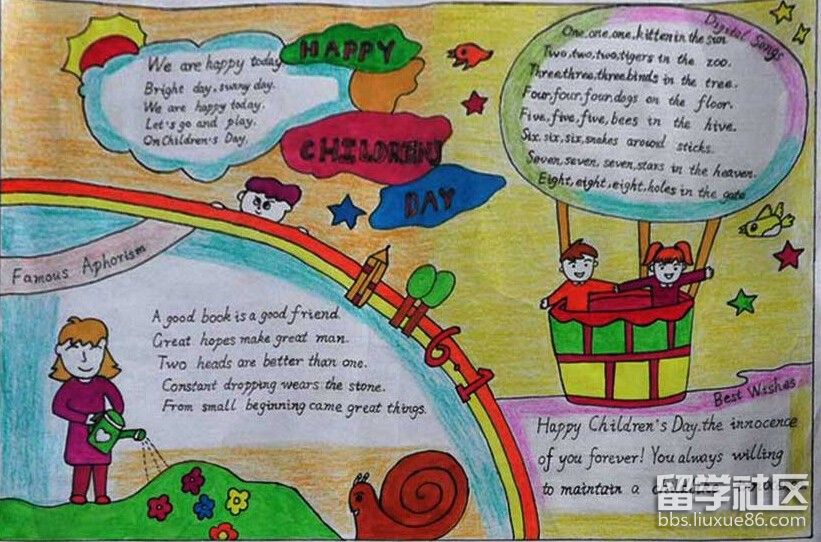 We are happy today
Bright day, sunny day.
We are happy today.
Let's go and play.
On Children's Day.
HAPPY
CHILDREN'S
DAY
Digital Songs
One, one, one, kitten in the sun
Two, two, two, tigers in the zoo.
Three, three, three, birds in the tree.
Four, four, four, dogs on the floor.
Five, five, five, bees in the hive.
Six, six, six, snakes around sticks.
Seven, seven, seven, stars in the heaven.
Eight, eight, eight, holes in the gate
Famous Aphorism
A good book is a good friend.
Great hopes make great man.
Two heads are better than one.
Constant dropping wears the stone.
From small beginning came great things.
6.1
Best Wishes
Happy Children's Day, the innocence
of you forever! You always willing
to maintain a
留学社区
bbs.liuxue86.com